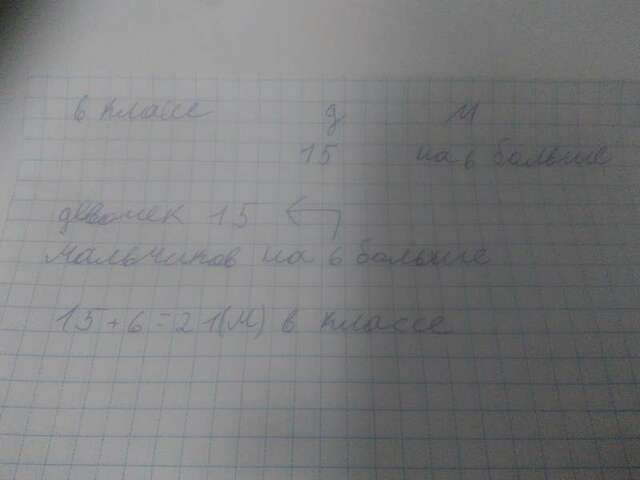 в классе д м
15 на 6 больше
девочек 15
мальчиков на 6 больше
15+6=21(м) в классе